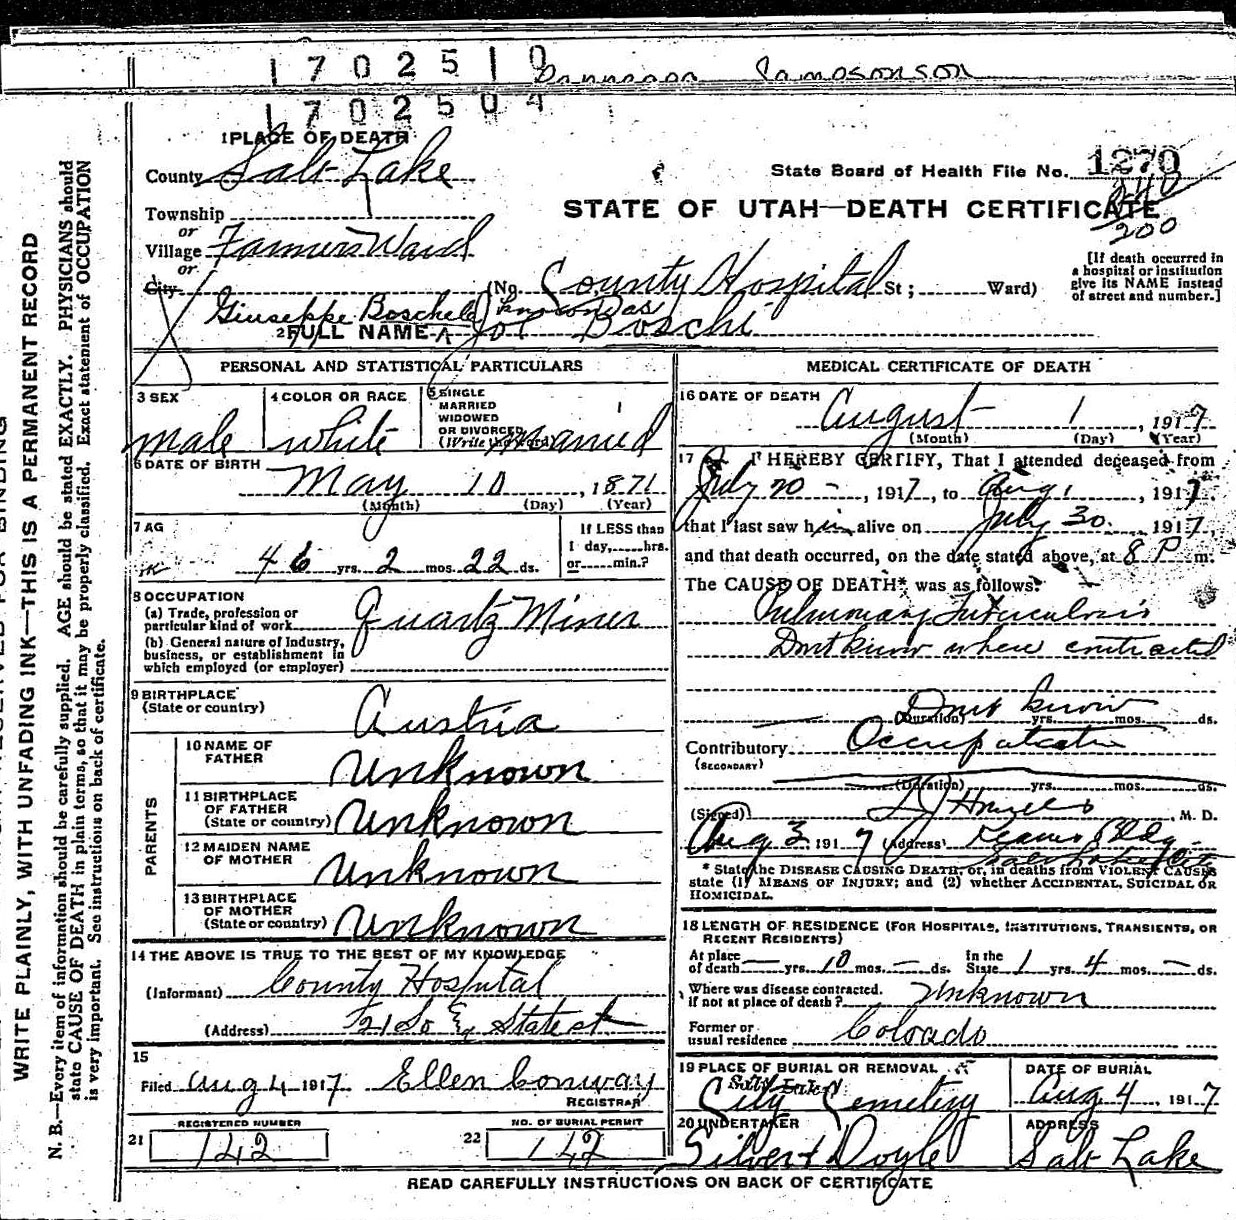 1702510
1702504
1 PLACE OF DEATH
County Salt Lake
State Board of Health File No. 1270
Township
or
STATE OF UTAH—DEATH CERTIFICATE
200
Village Farmers Ward
or
City
(No. County Hospital St; Ward)
[If death occurred in
a hospital or institution
give its NAME instead
of street and number.]
Giuseppe known as
2 FULL NAME Joe Boschi
PERSONAL AND STATISTICAL PARTICULARS
3 SEX
male
4 COLOR OR RACE
white
5 SINGLE
MARRIED
WIDOWED
OR DIVORCED
(Write the word)
Married
6 DATE OF BIRTH
May 10, 1871
(Month) (Day) (Year)
7 AG
46 yrs. 2 mos. 22 ds.
If LESS than
1 day, hrs.
or min.?
8 OCCUPATION
(a) Trade, profession or
particular kind of work Quartz Miner
(b) General nature of Industry,
business, or establishment in
which employed (or employer)
9 BIRTHPLACE
(State or country)
Austria
PARENTS
10 NAME OF
FATHER
Unknown
11 BIRTHPLACE
OF FATHER
(State or country)
Unknown
12 MAIDEN NAME
OF MOTHER
Unknown
13 BIRTHPLACE
OF MOTHER
(State or country)
Unknown
14 THE ABOVE IS TRUE TO THE BEST OF MY KNOWLEDGE
(Informant) County Hospital
(Address) 21 So & State st
15
Filed Aug 4 1917 Ellen Conway
REGISTRAR
21
REGISTERED NUMBER
142
22
NO. OF BURIAL PERMIT
142
MEDICAL CERTIFICATE OF DEATH
16 DATE OF DEATH
August 1, 1917
(Month) (Day) (Year)
17 I HEREBY CERTIFY, That I attended deceased from
July 20 -, 1917, to Aug 1, 1917
that I last saw him alive on July 30, 1917,
and that death occurred, on the date stated above, at 8 P m.
The CAUSE OF DEATH* was as follows:
Pulmonary Tuberculosis
Dont know where contracted
Dont know
(Duration) yrs. mos. ds.
Contributory Occupation
(SECONDARY)
(Duration) yrs. mos. ds.
(Signed) , M. D.
Aug 3, 1917 (Address) Bldg
Salt Lake City
* State the DISEASE CAUSING DEATH, or, in deaths from VIOLENT CAUSES
state (1) MEANS OF INJURY; and (2) whether ACCIDENTAL, SUICIDAL OR
HOMICIDAL.
18 LENGTH OF RESIDENCE (FOR HOSPITALS, INSTITUTIONS, TRANSIENTS, OR
RECENT RESIDENTS)
At place
of death — yrs. 10 mos. — ds.
In the
State 1 yrs. 4 mos. — ds.
Where was disease contracted,
if not at place of death? Unknown
Former or
usual residence Colorado
19 PLACE OF BURIAL OR REMOVAL
Salt Lake
City Cemetery
DATE OF BURIAL
Aug 4, 1917
20 UNDERTAKER
Silver & Doyle
ADDRESS
Salt Lake
READ CAREFULLY INSTRUCTIONS ON BACK OF CERTIFICATE
WRITE PLAINLY, WITH UNFADING INK—THIS IS A PERMANENT RECORD
N. B.—Every item of information should be carefully supplied. AGE should be stated EXACTLY. PHYSICIANS should
state CAUSE OF DEATH in plain terms, so that it may be properly classified. Exact statement of OCCUPATION
is very important. See instructions on back of certificate.